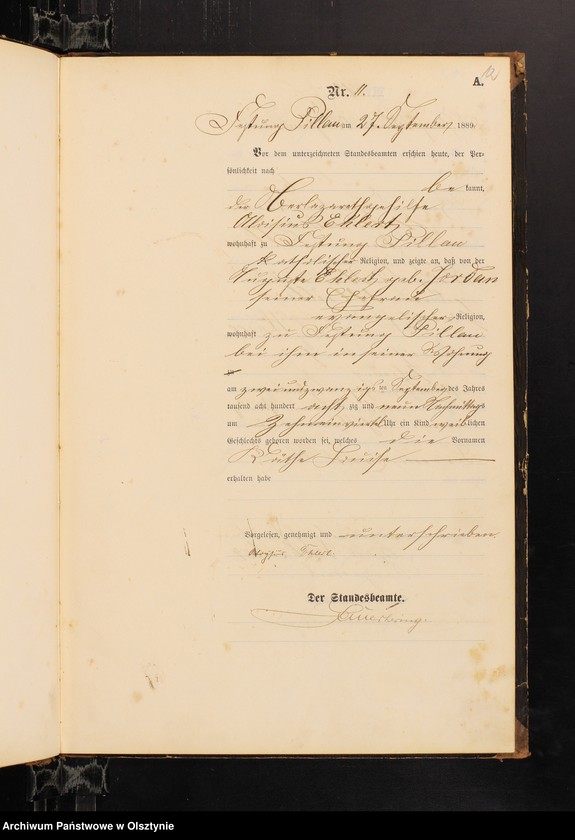 12
A.
Nr. 11.
Festung Pillau am 27. September 1889.
Vor dem unterzeichneten Standesbeamten erschien heute, der Per-
sönlichkeit nach
be kannt,
der Oberlazarethgehilfe
Aloisius Ehlert
wohnhaft zu Festung Pillau
katholischer Religion, und zeigte an, daß von der
Auguste Ehlert geb. Jordan
seiner Ehefrau
evangelischer Religion,
wohnhaft zu Festung Pillau
bei ihm in seiner Wohnung
zu
am zweiundzwanzigsten September des Jahres
tausend acht hundert acht zig und neun Nachmittags
um zehneinviertel Uhr ein Kind weiblichen
Geschlechts geboren worden sei, welches die Vornamen
Käthe Louise
erhalten habe
Vorgelesen, genehmigt und unterschrieben
Der Standesbeamte.
Archiwum Państwowe w Olsztynie